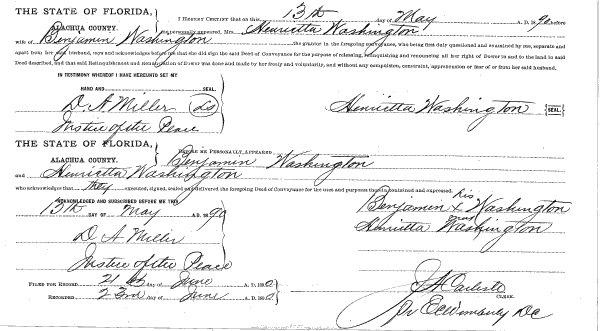 THE STATE OF FLORIDA,
ALACHUA COUNTY.
I HEREBY CERTIFY that on this 13th day of May A. D. 90 before
me personally appeared, Mrs. Henrietta Washington
wife of Benjamin Washington the grantor in the foregoing conveyance, who being first duly questioned and examined by me, separate and
apart from her said husband, says and acknowledges before me that she did sign the said Deed of Conveyance for the purpose of releasing, relinquishing and renouncing all her right of Dower in said to the land in said
Deed described, and that said Relinquishment and Renunciation of Dower was done and made by her freely and voluntarily, and without any compulsion, constraint, apprehension or fear of or from her said husband.
IN TESTIMONY WHEREOF I HAVE HEREUNTO SET MY
HAND AND SEAL.
D. A Miller LS
Justice of the Peace
Henrietta Washington SEAL.
THE STATE OF FLORIDA,
ALACHUA COUNTY.
BEFORE ME PERSONALLY APPEARED Benjamin Washington
and Henrietta Washington
who acknowledges that they executed, signed, sealed and delivered the foregoing Deed of Conveyance for the uses and purposes therein contained and expressed.
ACKNOWLEDGED AND SUBSCRIBED BEFORE ME THIS
13th DAY OF May A. D. 1890
D. A Miller
Justice of the Peace
his
Benjamin x Washington
mark
Henrietta Washington
FILED FOR RECORD 21st day of June A. D. 1890
RECORDED 23rd day of June A. D. 1890
CLERK.
Pr E C Wimberly D C